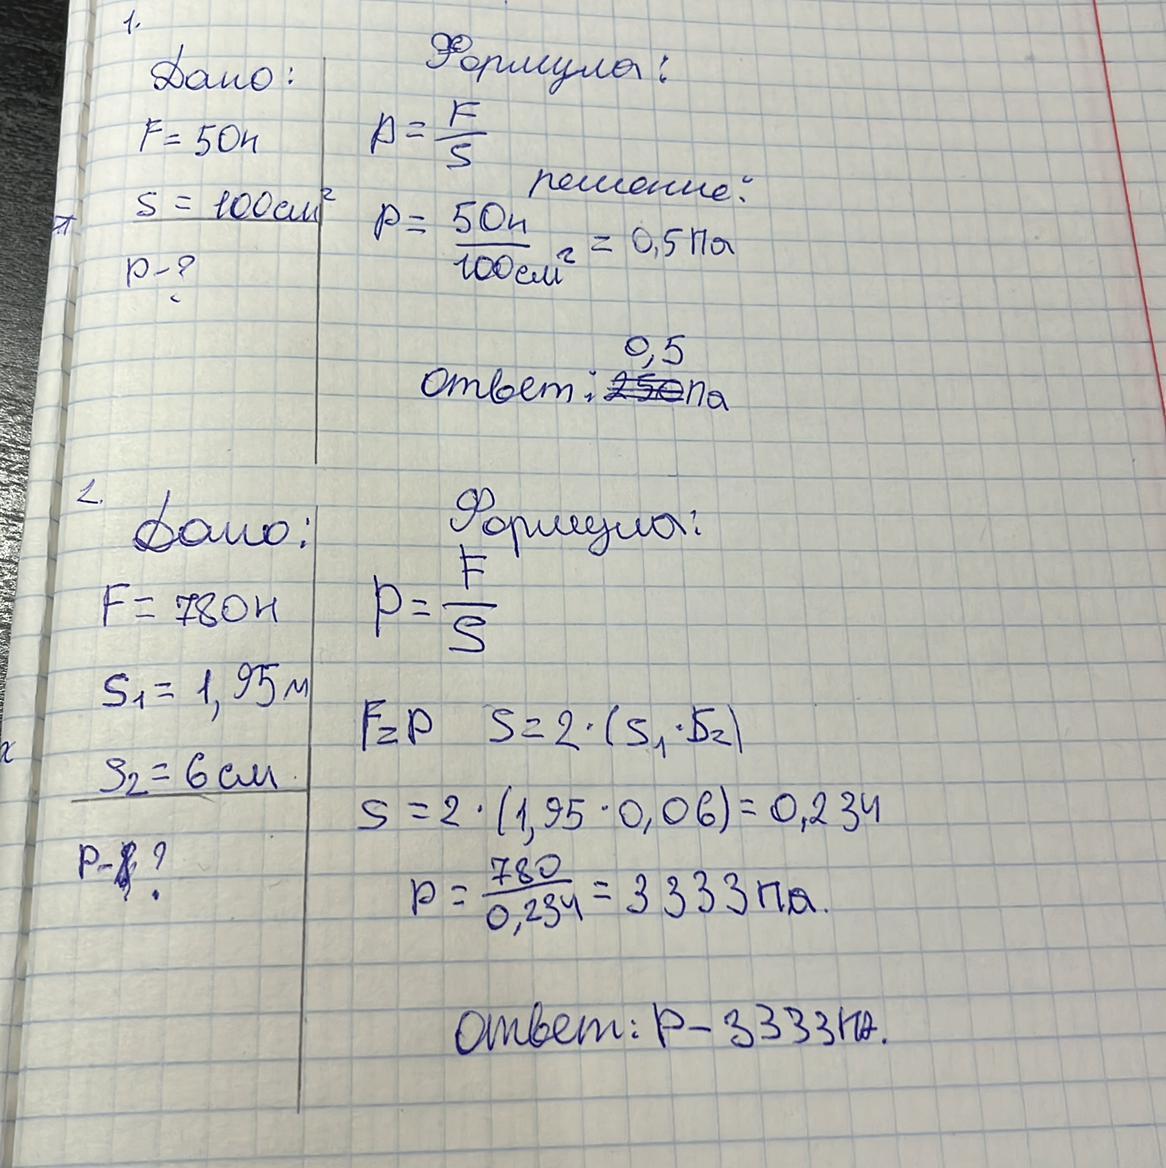 1.
Дано:
F = 50н
S = 100см²
p - ?
Формула:
p = F/S
решение:
p = 50н/100см² = 0,5 Па
0,5
Ответ: 250 Па
2.
Дано:
F = 780н
S₁ = 1,95м
S₂ = 6см
P - ?
Формула:
p = F/S
F = P S = 2 · (S₁ · S₂)
S = 2 · (1,95 · 0,06) = 0,234
p = 780/0,234 = 3333 Па.
Ответ: P - 3333 Па.